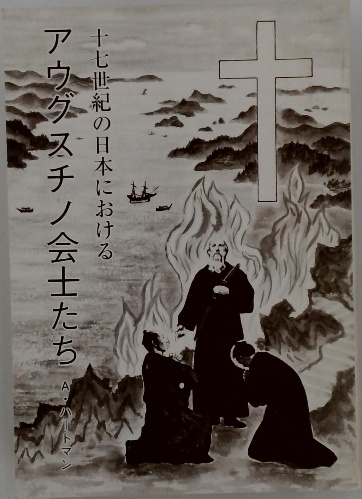 十七世紀の日本における
アウグスチノ会士たち
A・ハートマン